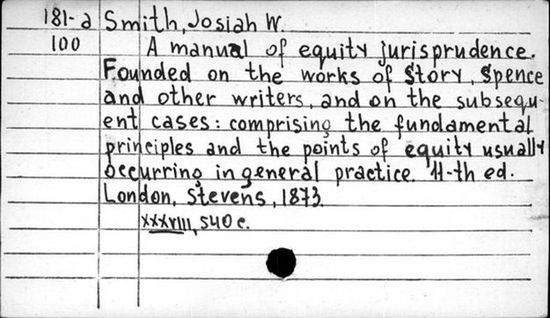 181-a Smith, Josiah W.
100 A manual of equity jurisprudence.
Founded on the works of Story, Spence
and other writers, and on the subsequ-
ent cases: comprising the fundamental
principles and the points of equity usually
occurring in general practice. 11-th ed.
London, Stevens, 1873.
XXXVIII, 540 c.